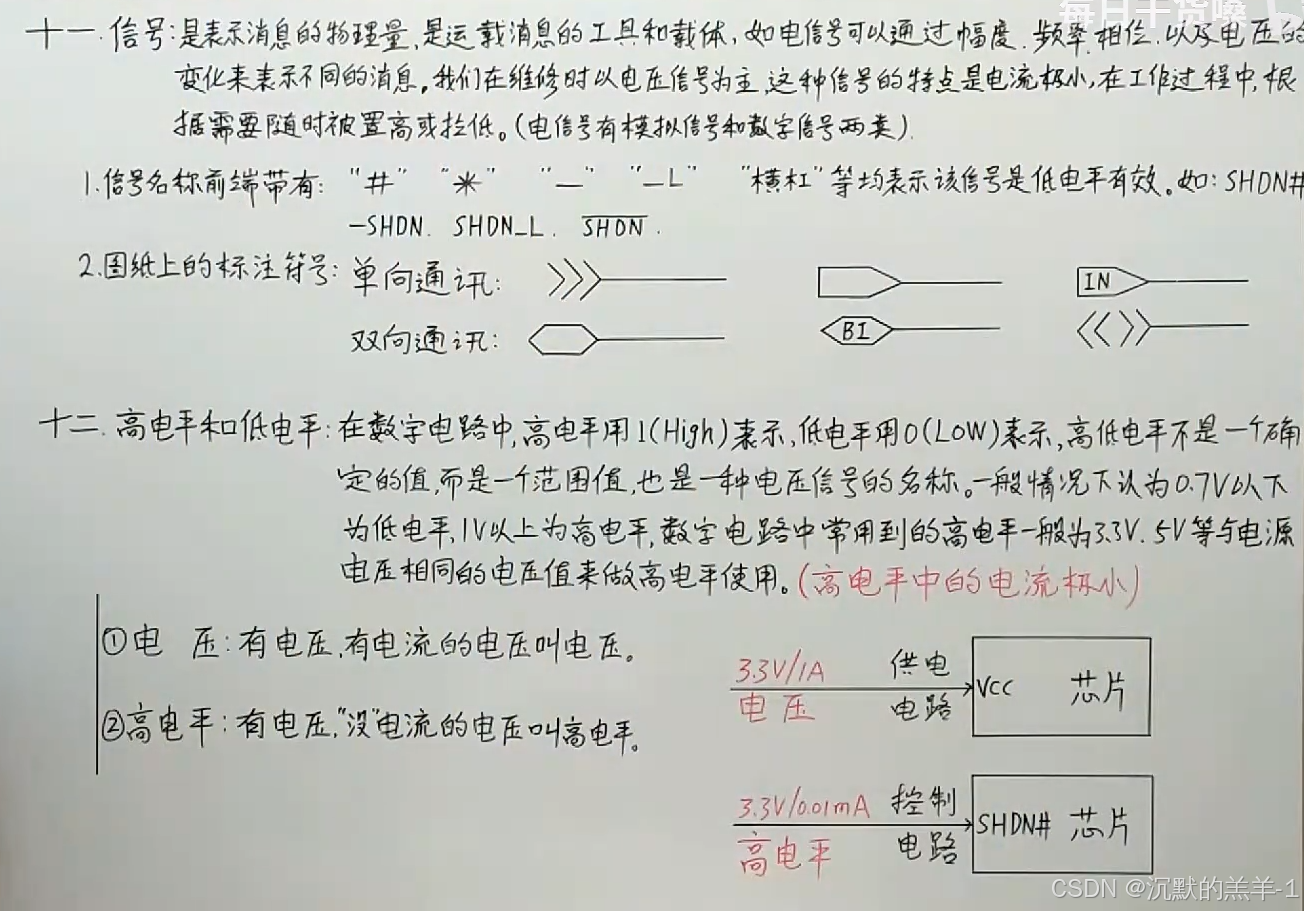 每日干货嗓
十一.信号:是表示消息的物理量,是运载消息的工具和载体,如电信号可以通过幅度.频率.相位.以及电压的
变化来表示不同的消息。我们在维修时以电压信号为主,这种信号的特点是电流极小,在工作过程中,根
据需要随时被置高或拉低。(电信号有模拟信号和数字信号两类).
1.信号名称前端带有: "#" "*" "—" "—L" "横杠"等均表示该信号是低电平有效。如: SHDN#
—SHDN. SHDN_L. S̅H̅D̅N̅.
2.图纸上的标注符号: 单向通讯: IN
双向通讯: BI
十二.高电平和低电平:在数字电路中,高电平用1(High)表示,低电平用0(LOW)表示,高低电平不是一个确
定的值,而是一个范围值,也是一种电压信号的名称。一般情况下认为0.7V以下
为低电平,1V以上为高电平,数字电路中常用到的高电平一般为3.3V.5V等与电源
电压相同的电压值来做高电平使用。(高电平中的电流极小)
①电 压:有电压,有电流的电压叫电压。
②高电平:有电压,"没"电流的电压叫高电平。
3.3V/1A 供电
电压 电路
VCC 芯片
3.3V/0.01mA 控制
高电平 电路
SHDN# 芯片
CSDN @沉默的羔羊-1